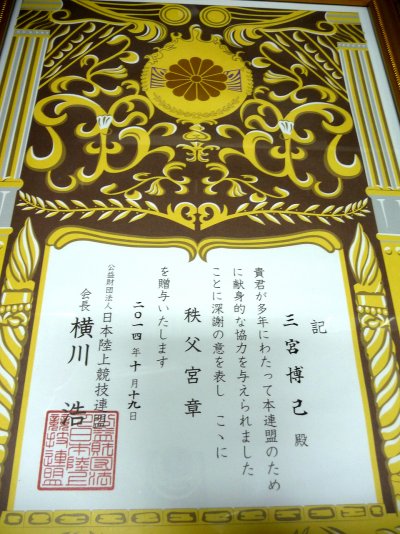 記
三宮博己 殿
貴君が多年にわたって本連盟のため
に献身的な協力を与えられました
ことに深謝の意を表し こゝに
秩父宮章
を贈与いたします
二〇一四年十月十九日
公益財団法人日本陸上競技連盟
会長 横川 浩